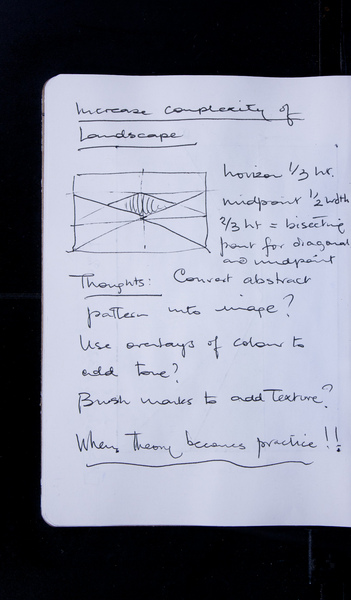 Increase complexity of
Landscape
horizon 1/3 ht.
midpoint 1/2 width
2/3 ht = bisecting
point for diagonal
and midpoint
Thoughts: Convert abstract
pattern into image?
Use overlays of colour to
add tone?
Brush marks to add Texture?
When Theory becomes practice!!